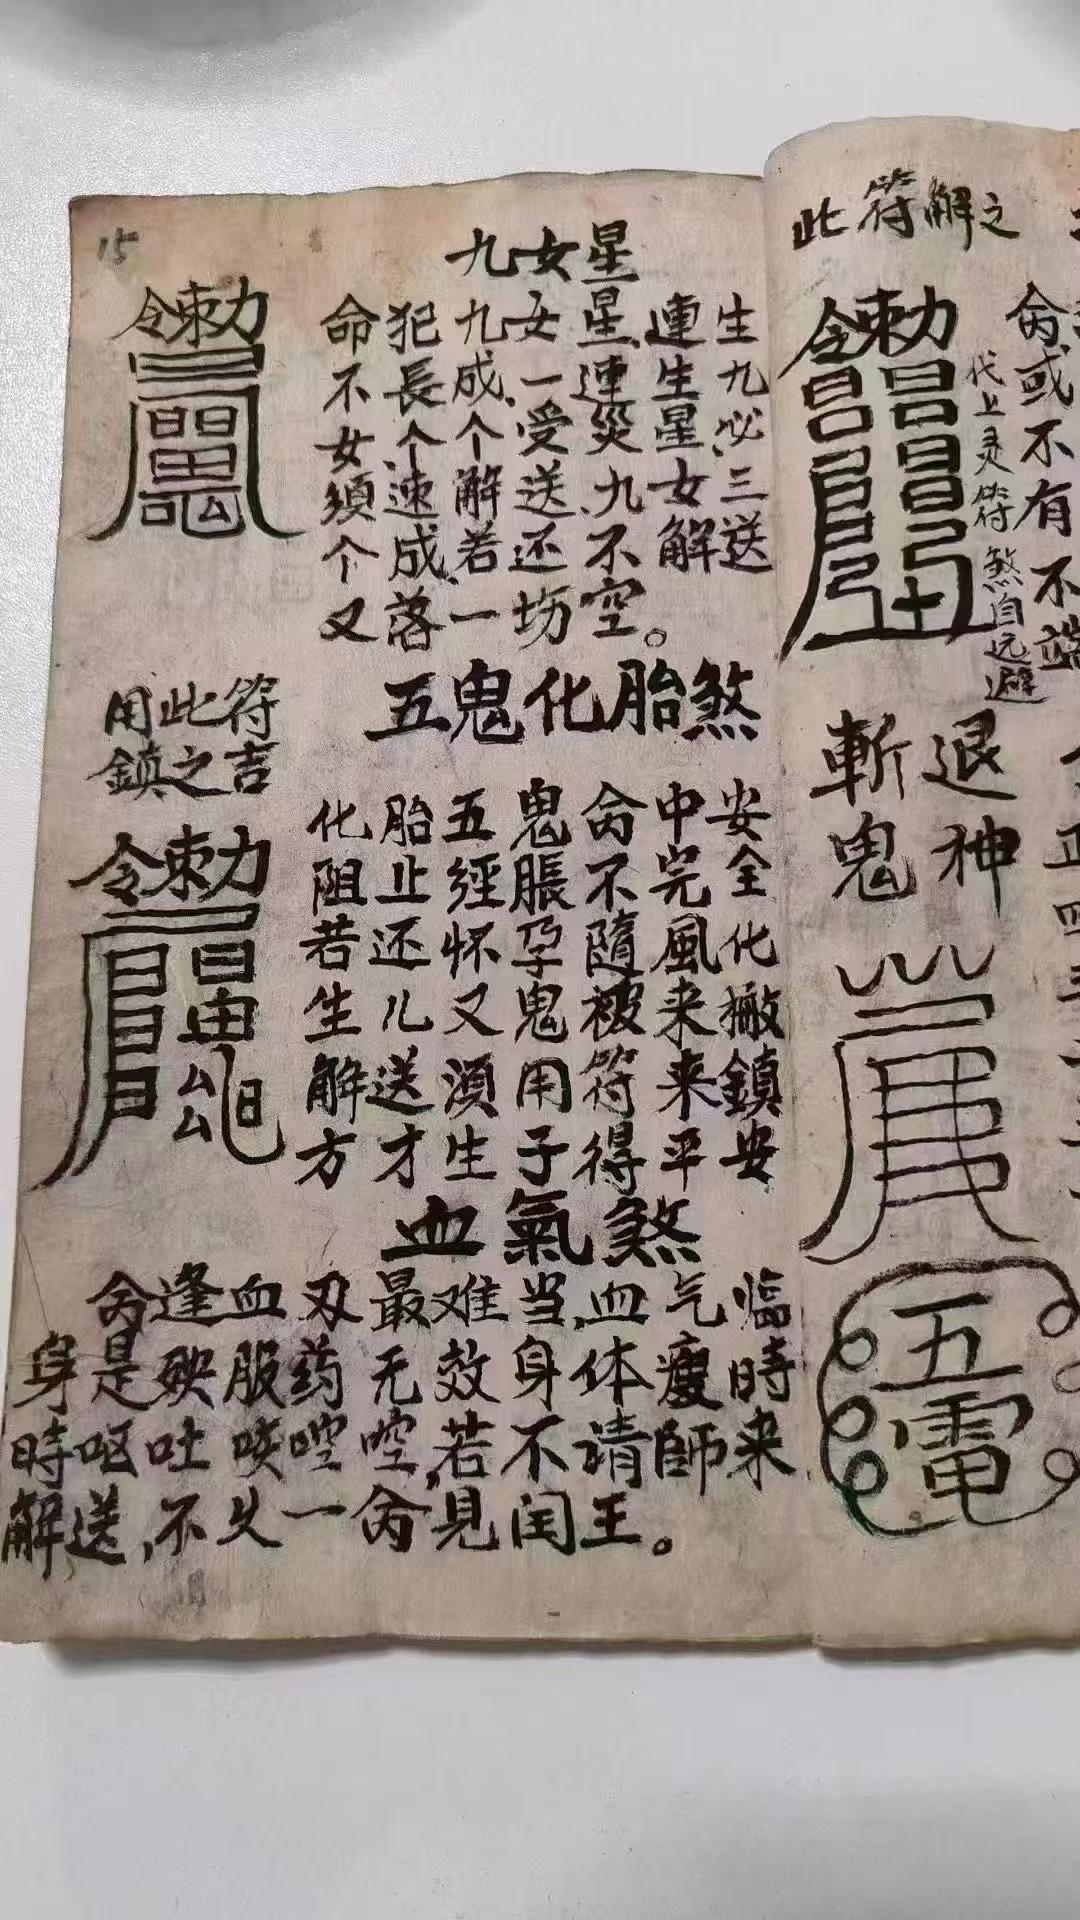 15
九女星
勅令
命犯九女星,連生
不長成,一連生九
女个个受災星必
須速解送,九女三
个成,若还不解送
又落一场空。
用此符
鎮之吉
五鬼化胎煞
勅令
化胎五鬼命中安
阻止經脹不完全
若还怀孕隨風化
生儿又鬼被来撇
解送須用符来鎮
方才生子得平安
血氣煞
命逢血刃最难当,血气临
身是殃服药无效身体瘦時
時呕吐咳啌啌,若不请師来
解送,不久一命見闰王。
此符解之
勅令
代上灵符
煞自远避
命或不有不端
斬鬼
退神
五雷